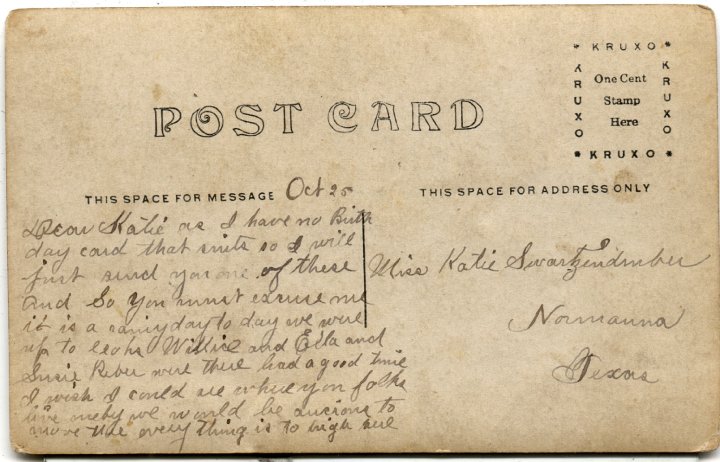 * KRUXO *
KRUXO
One Cent
Stamp
Here
KRUXO
* KRUXO *
POST CARD
THIS SPACE FOR MESSAGE
THIS SPACE FOR ADDRESS ONLY
Oct 25
Dear Katie as I have no Birth
day card that suits so I will
just send you one of these
and So you must excuse me
it is a rainy day to day we were
up to Willie and Ella and
Susie were there had a good time
I wish I could see where you folks
live we would be to
move there every thing is to high here
Miss Katie Swartzendruber
Normanna
Texas